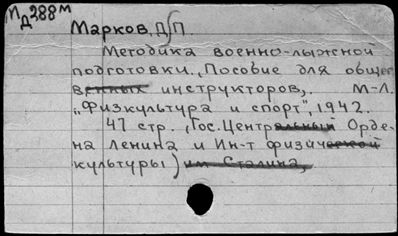 Ид388м
Марков, Д.П.
Методика военно-лыжной
подготовки., Пособие для общев
енных инструкторов,. М-Л.
„Физкультура и спорт", 1942.
47 стр. , (Гос. Центральный Орде-
на Ленина и Ин-т физической
культуры) им. Сталина,